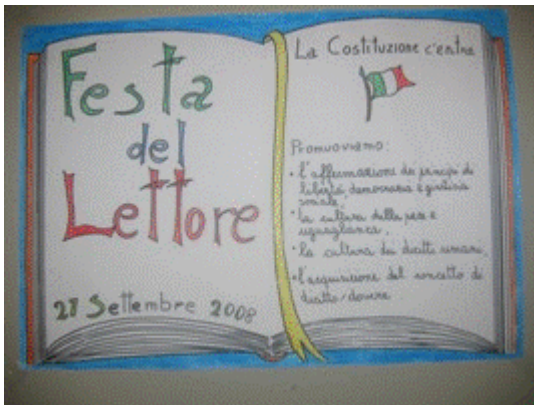 Festa
del
Lettore
27 Settembre 2008
La Costituzione c'entra
Promuoviamo:
• l'affermazione dei principi di
libertà, democrazia e giustizia
sociale;
• la cultura della pace e
uguaglianza,
• la cultura dei diritti umani,
• l'acquisizione del concetto di
diritto/dovere